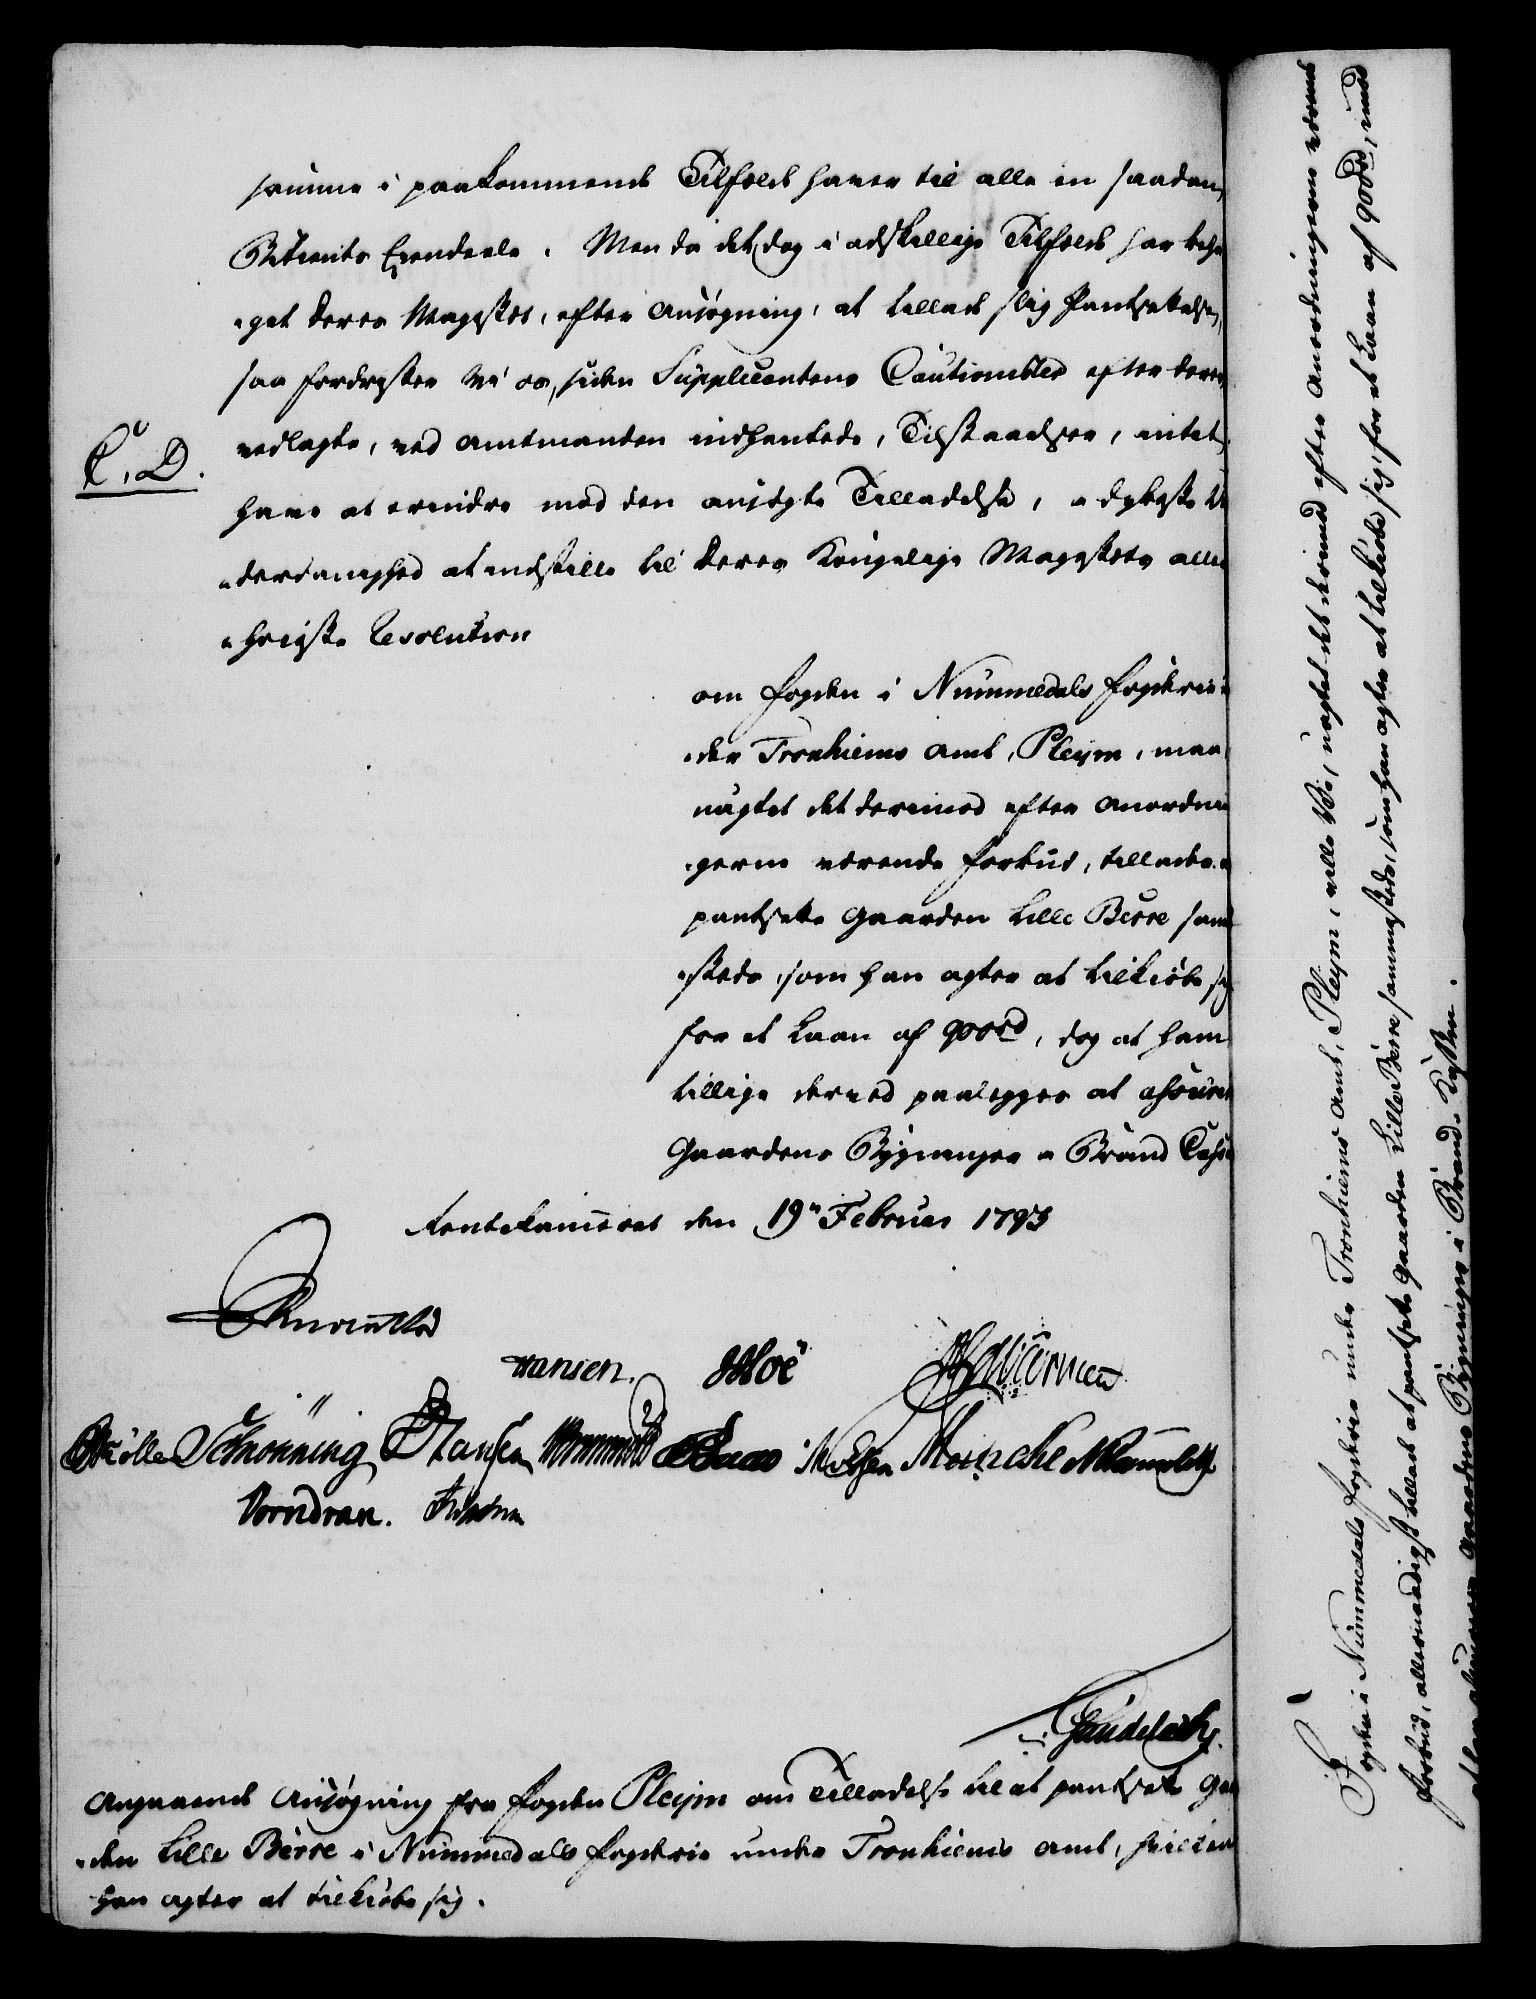 samme i paakommende Tilfælde haver til alle en saadan
Betients Eiendeele. Men da det dog i adskillige Tilfælde har beha
get Deres Majestet, efter Ansøgning, at tillade slig Pantsættelse,
saa fordrister Vi os, siden Supplicantens Cautionister efter deres
C. D.
vedlagte, ved Amtmanden indhentede, Tilstaaelser, intet
have at erindre mod den ansøgte Tilladelse, i dybeste Un
derdanighed at indstille til Deres Kongelige Majestets aller
høieste Resolution
om Fogden i Nummedals Fogderie un
der Tronhiems Amt, Pleym, maa,
uagtet det derimod efter Anordnin
gerne værende Forbud, tillades at
pantsætte Gaarden Lille Bërre samme
steds, som han agter at tilkiøbe sig
for et Laan af 900rd, dog at ham
tillige derved paalegges at assurere
Gaardens Bygninger i Brand Cassen
Rentekammeret den 19n Februar 1793
Hansen. Hoë
Møller Schønning Hansen Wormskiold Munche
Vorndran.
Angaaende Ansøgning fra Fogden Pleym om Tilladelse til at pantsætte Gaar
den Lille Bërre i Nummedals Fogderie under Tronhiems Amt, hvilken
han agter at tilkiøbe sig.
Fogden i Nummedals Fogderie under Tronhiems Amt, Pleym, ville Vi, uagtet det derimod efter Anordningerne værende
Forbud, allernaadigst tillade at pantsætte Gaarden Lille Bërre sammesteds, som han agter at tilkiøbe sig, for et Laan af 900rd, imod
Gaardens Bygninger i Brand-Kassen.